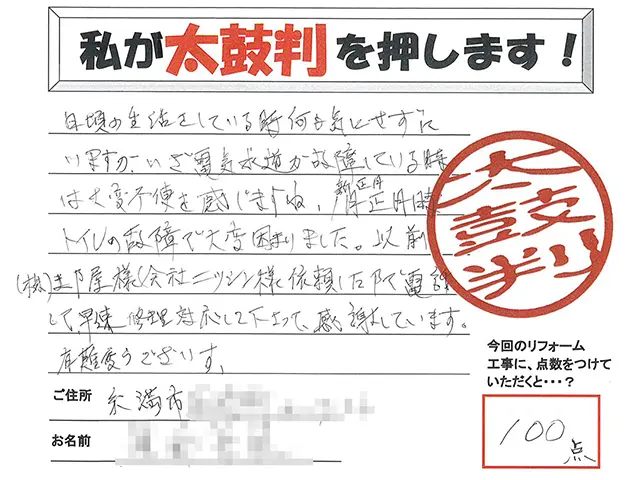 私が太鼓判を押します！
日頃の生活をしている時何も気にせずに
いますが、いざ電気水道が故障している時
は大変不便を感じますね、
正月
トイレの故障で大変困りました。以前
様（会社ニッシン様依頼した
して早速修理対応して下さって、感謝しています。
有難度うございます。
太鼓判
今回のリフォーム
工事に、点数をつけて
いただくと・・・？
100点
ご住所 糸満市
お名前